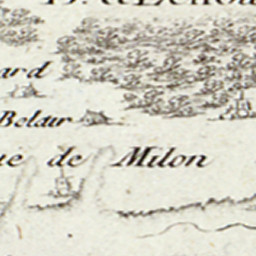 ard
Belair
ue de Milon